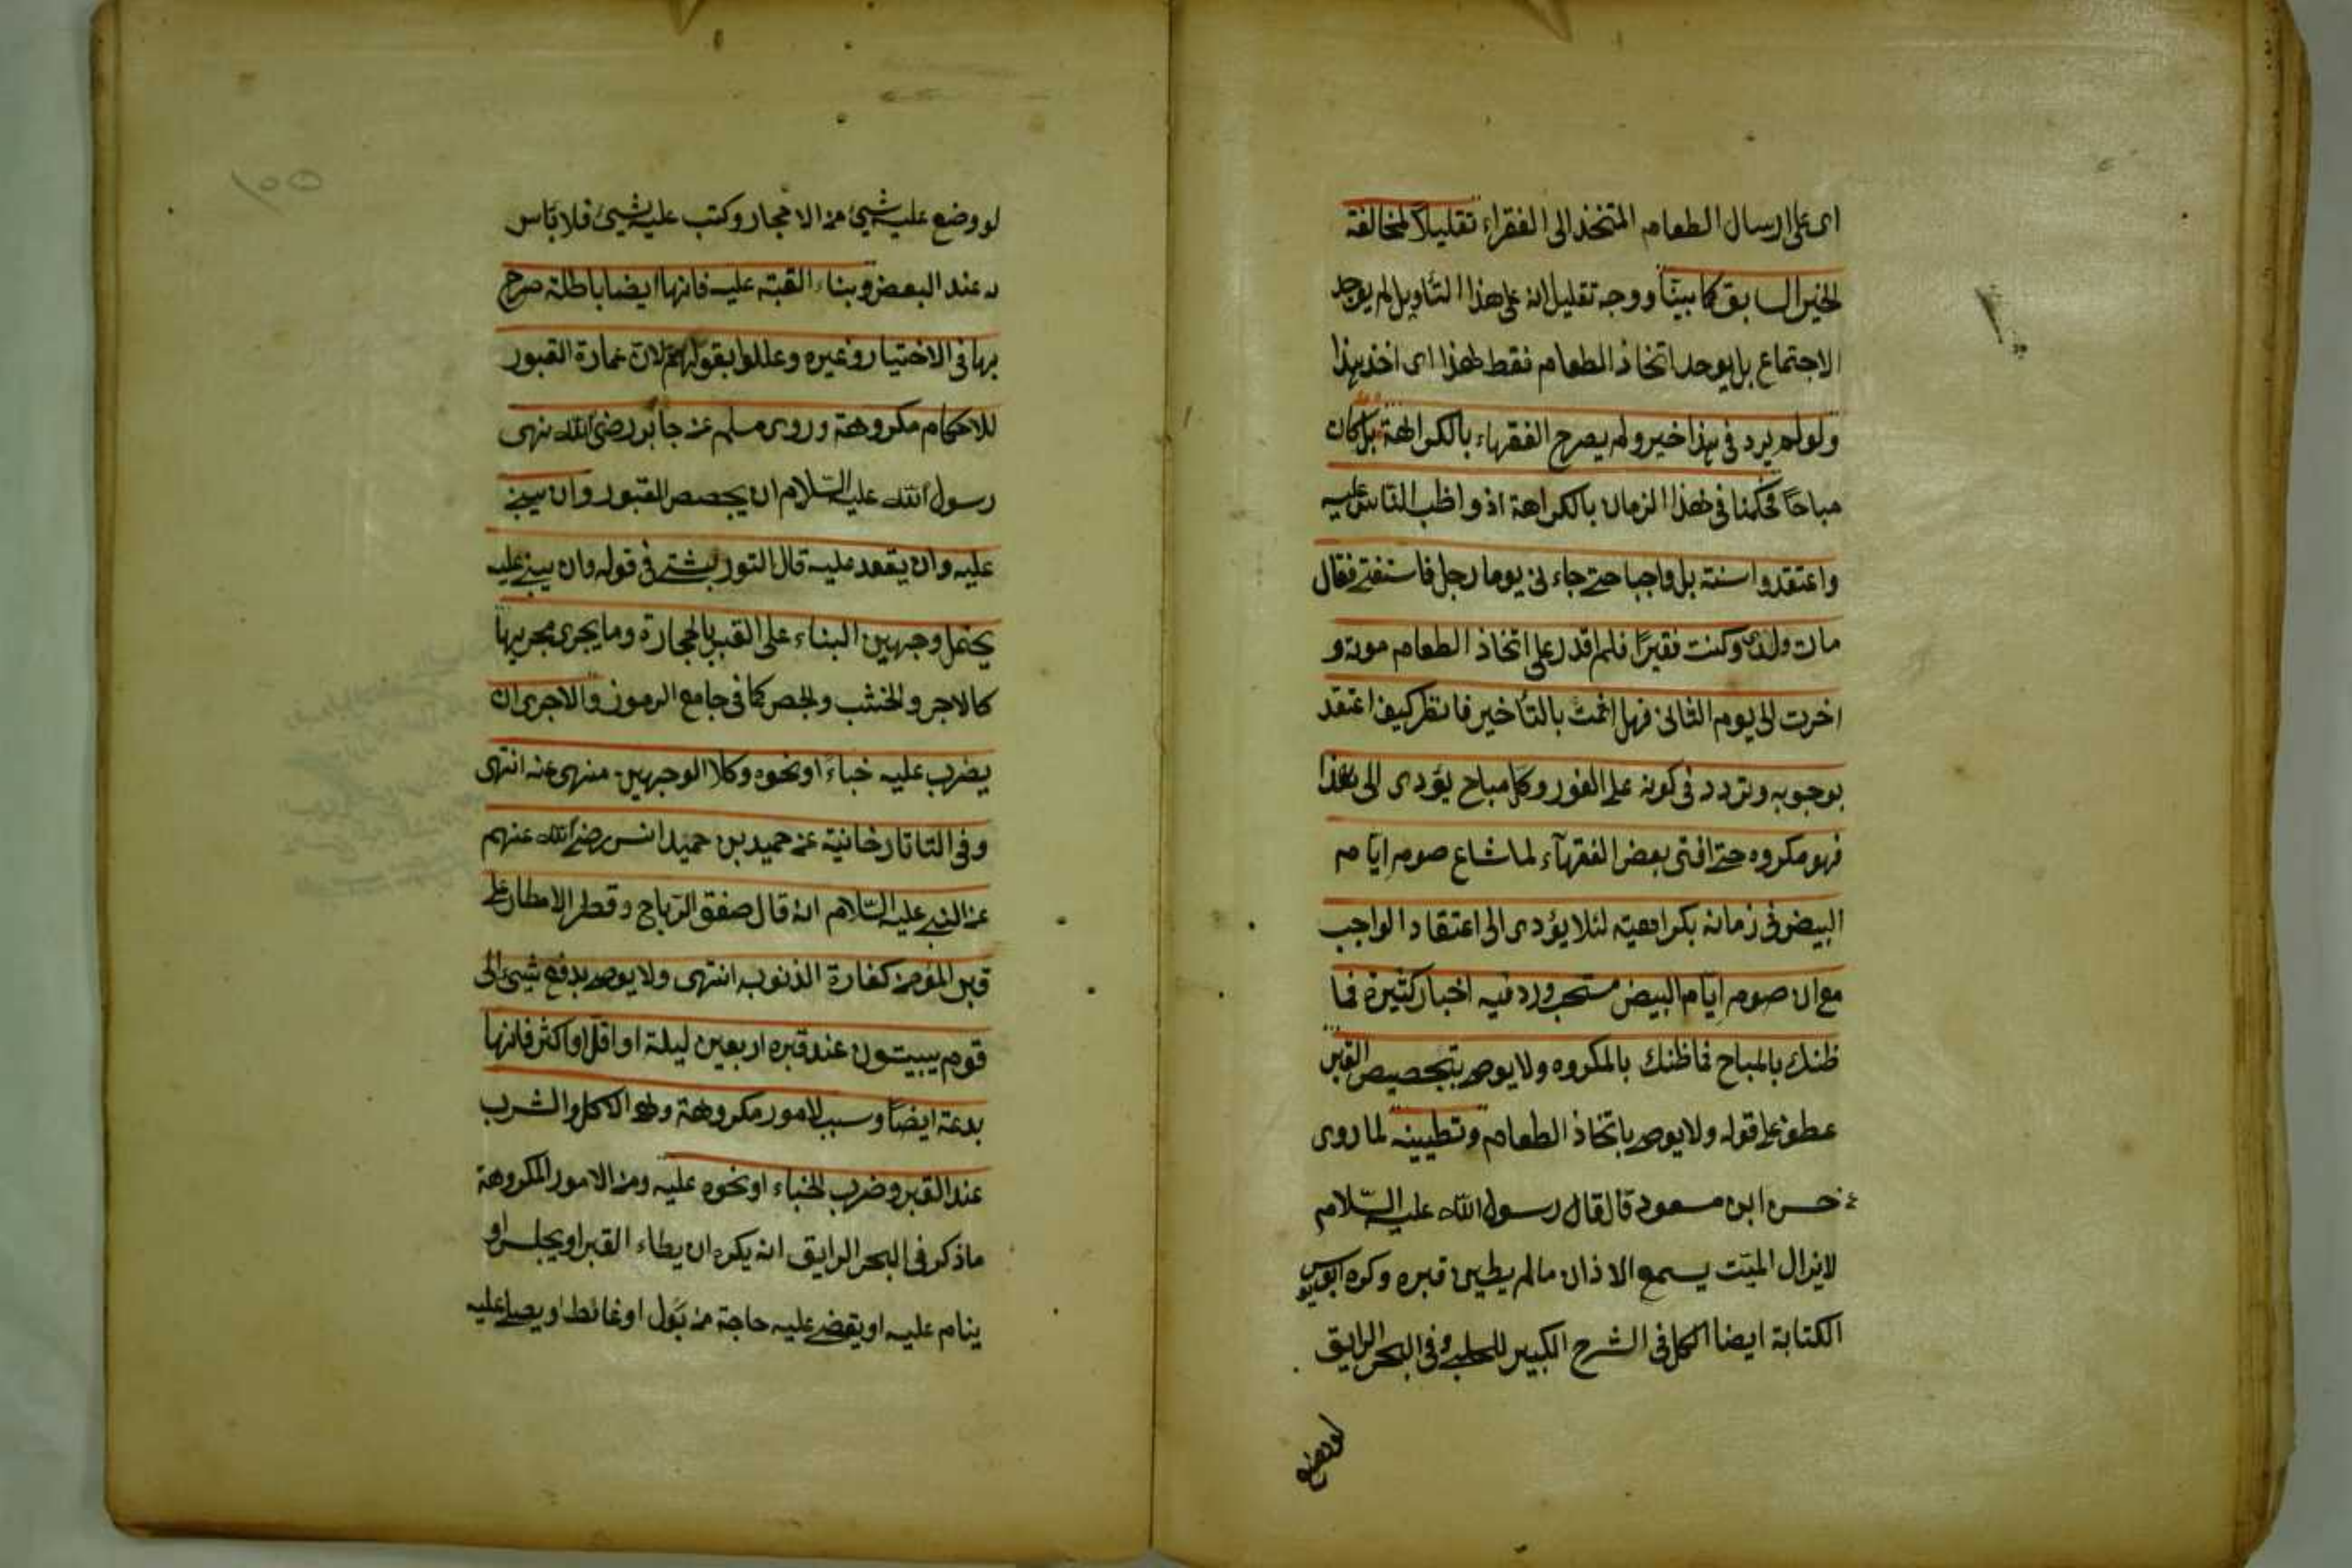 اى على ارسال الطعام المتخذ الى الفقراء تقليلاً لمخالفة
الخبر السابق كما بيناً ووجه تقليل انه على هذا التأويل لم يوجد
الاجتماع بل يوجد اتخاذ الطعام فقط هذا اى اخذ بهذا
ولو لم يرد فى هذا خبر ولم يصرح الفقهاء بالكراهة بل كان
مباحاً لحكمنا فى هذا الزمان بالكراهة اذ واظب الناس عليه
واعتقدوا سنته بل واجبا حتى جاء نى يوما رجل فاستفتى فقال
مات ولدى وكنت فقيراً فلم اقدر على اتخاذ الطعام موته و
اخرت الى يوم الثانى فهل اثمت بالتأخير فانظر كيف اعتقد
بوجوبه وتردد فى كونه على الفور وكل مباح يؤدى الى هذا
فهو مكروه حتى افتى بعض الفقهآء لما شاع صوم ايام
البيض فى زمانه بكراهيته لئلا يؤدى الى اعتقاد الواجب
مع ان صوم ايام البيض مستحب ورد فيه اخبار كثيرة فما
ظنك بالمباح فما ظنك بالمكروه ولا يوصى بتجصيص القبر
عطف على قوله ولا يوصى باتخاذ الطعام وتطيينه لما روى
حسن ابن مسعود قال قال رسول الله عليه السّلام
لا يزال الميّت يسمع الاذان ما لم يطين قبره وكره ابو يوسف
الكتابة ايضا الكل فى الشرح الكبير للحلبى وفى البحر الرايق
لو وضع
لو وضع عليه شيئ من الاحجار وكتب عليه شيئ فلا بأس
به عند البعض وبناء القبة عليه فانها ايضا باطلة صرح
بها فى الاختيار وغيره وعللوا بقولهم لان عمارة القبور
للاحكام مكروهة وروى مسلم عن جابر رضى الله نهى
رسول الله عليه السّلام ان يجصص القبور وان يبنى
عليه وان يقعد عليه قال التوربشتى فى قوله وان يبنى عليه
يحتمل وجهين البناء على القبر بالحجارة وما يجرى مجريها
كالاجر والخشب والجص كما فى جامع الرموز والاجرى ان
يضرب عليه خباءً او نحوه وكلا الوجهين منهى عنه انتهى
وفى التاتارخانية عن حميد بن حميد انس رضى الله عنهم
عن النبى عليه السّلام انه قال صفق الرياح وقطر الامطار على
قبر المؤمن كفارة الذنوب انتهى ولا يوصى بدفع شيئ الى
قوم يبيتون عند قبره اربعين ليلة او اقل او اكثر فانها
بدعة ايضاً وسبب لامور مكروهة وهو الاكل والشرب
عند القبر وضرب الخباء او نحوه عليه ومن الامور المكروهة
ما ذكر فى البحر الرايق انه يكره ان يطاء القبر او يجلس او
ينام عليه او يقضى عليه حاجة من بول او غائط او يصلى عليه